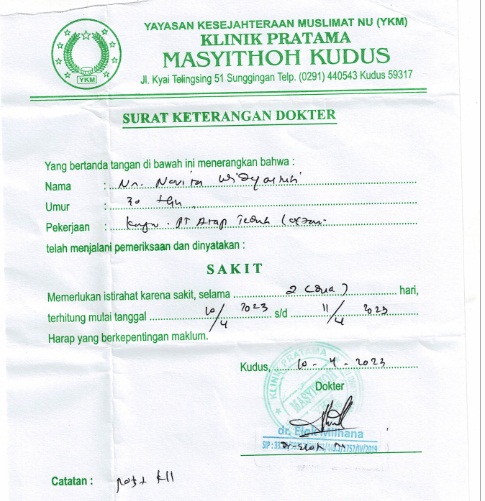 YAYASAN KESEJAHTERAAN MUSLIMAT NU (YKM)
KLINIK PRATAMA
MASYITHOH KUDUS
Jl. Kyai Telingsing 51 Sunggingan Telp. (0291) 440543 Kudus 59317
YKM
SURAT KETERANGAN DOKTER
Yang bertanda tangan di bawah ini menerangkan bahwa :
Nama : Nn. Novita
Umur : 30 thn
Pekerjaan : PT
telah menjalani pemeriksaan dan dinyatakan :
SAKIT
Memerlukan istirahat karena sakit, selama 2 (dua) hari,
terhitung mulai tanggal 10/4 2023 s/d 11/4 2023
Harap yang berkepentingan maklum.
Kudus, 10 - 4 - 2023
Dokter
Catatan : post KLL